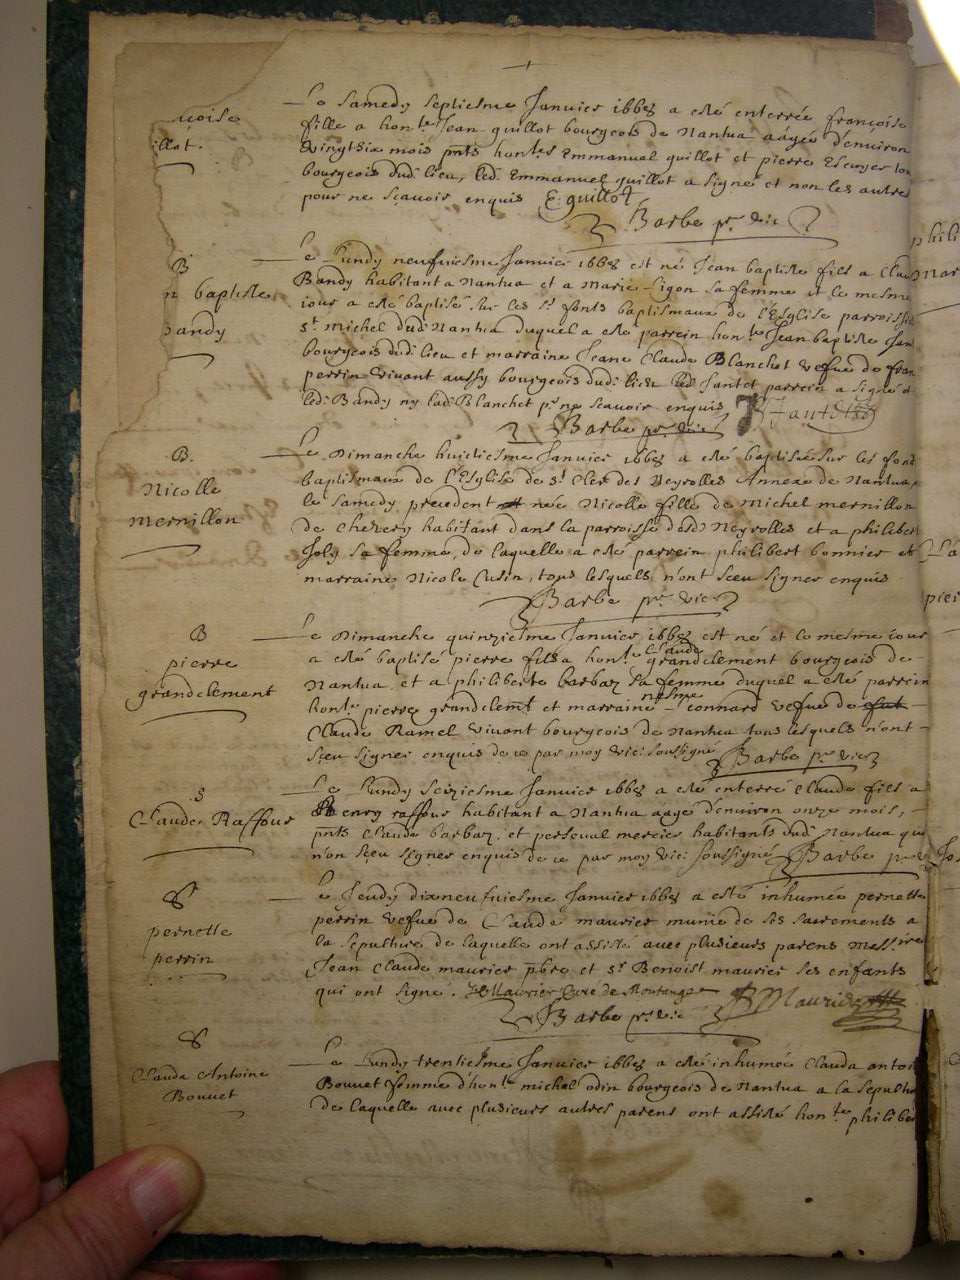 uoise
illot.
Le samedy septiesme Januier 1668 a esté enterrée françoise
fille a hon.te Jean guillot bourgeois de Nantua aagée d'enuiron
vingtsix mois pnts hon.tes Emmanuel guillot et pierre
bourgeois dud. lieu, led. Emmanuel guillot a signé et non les autres
pour ne scauoir enquis E. guillot
Barbe pr. vic
B
n baptiste
bandy
Le Lundy neufuiesme Januier 1668 est né Jean baptiste fils a Clau
Bandy habitant a Nantua et a Marie Ligon sa femme et le mesme
iour a esté baptisé sur les st. fonts baptismaux de l'Esglise parroissi
st. Michel dud. Nantua duquel a esté parrein hon.te Jean baptiste Jan
bourgeois dud. lieu et marraine Jeane Claude Blanchet vefue de fran
perrin viuant aussy bourgeois dud. lieu led. Jantet parrein a signé
led. Bandy ny lad. Blanchet p.r ne scauoir enquis Jantet
Barbe pr. vic
B.
Nicolle
mermillon
Le Dimanche huictiesme Januier 1668 a esté baptisée sur les font
baptismaux de l'Esglise de st. Cler des Neyrolles Annexe de Nantua,
le samedy precedent née Nicolle fille de Michel mermillon
de Chevery habitant dans la parroisse desd. Neyrolles et a philibert
Joly sa femme, de laquelle a esté parrein philibert bonnier et
marraine Nicole Cusin, tous lesquels n'ont sceu signer enquis
Barbe pr. vic
B
pierre
grandclement
Le Dimanche quinziesme Januier 1668 est né et le mesme iour
a esté baptisé pierre fils a hon.te Claude grandclement bourgeois de
Nantua et a philiberte barbaz sa femme duquel a esté parrein
hon.te pierre grandclemt et marraine connard vefue de
Claude Ramel viuant bourgeois de Nantua tous lesquels n'ont
sceu signer enquis de ce par moy vic. soussigné Barbe pr. vic
S
Claude Raffour
Le Lundy seiziesme Januier 1668 a esté enterré Claude fils a
henry raffour habitant a Nantua aagé d'enuiron onze mois,
pnts Claude barbaz, et perseual mercier habitants dud. Nantua qui
n'on sceu signer enquis de ce par moy vic. soussigné Barbe pr. v
S
pernette
perrin
Le Jeudy dixneufuiesme Januier 1668 a esté inhumée pernette
perrin vefue de Claude maurier munie de ses sacrements a
la sepulture de laquelle ont assisté auec plusieurs parens Mess.ire
Jean Claude maurier pbre et sr. Benoist maurier ses enfants
qui ont signé. Maurier Curé de B Maurier
Barbe pr. vic
S
Clauda Antoine
Bouuet
Le Lundy trentiesme Januier 1668 a esté inhumée Clauda antoi
Bouuet femme d'hon.te michel odin bourgeois de Nantua a la sepultu
de laquelle auec plusieurs autres parens ont assisté hon.te philiber